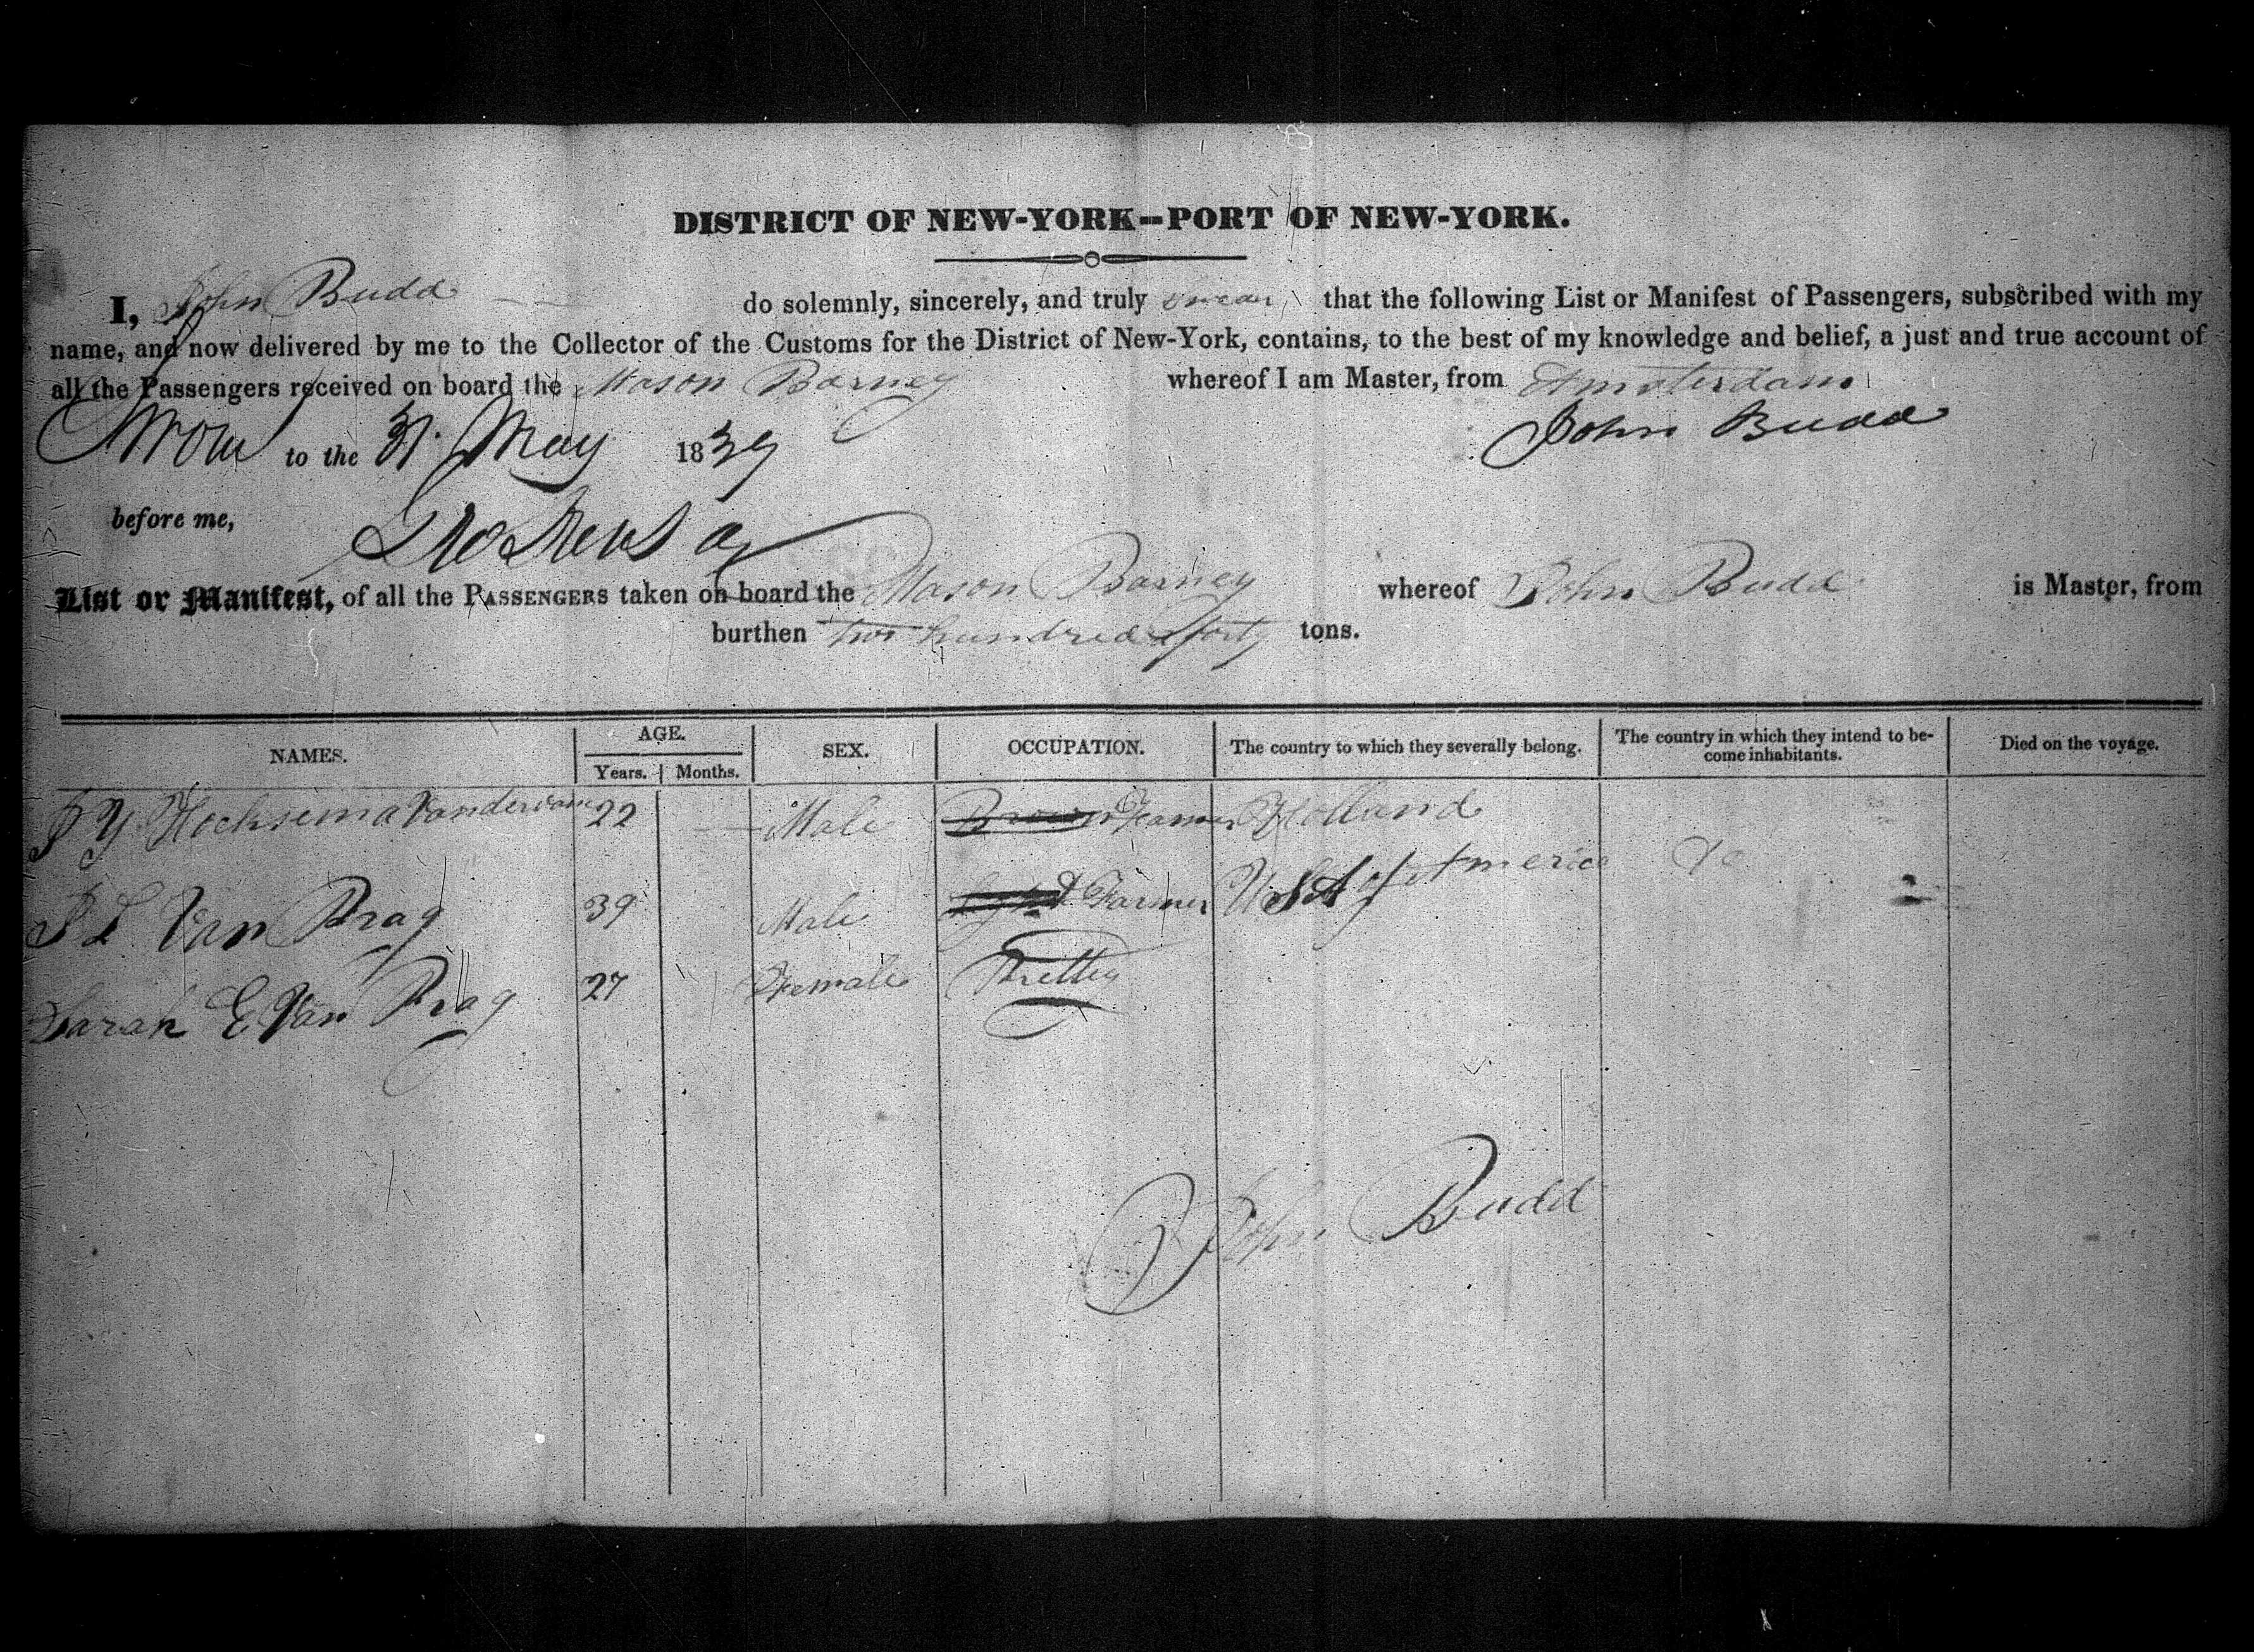 DISTRICT OF NEW-YORK--PORT OF NEW-YORK.
I, John Budd do solemnly, sincerely, and truly swear that the following List or Manifest of Passengers, subscribed with my
name, and now delivered by me to the Collector of the Customs for the District of New-York, contains, to the best of my knowledge and belief, a just and true account of
all the Passengers received on board the Mason Barney whereof I am Master, from Amsterdam
Sworn to the 31 May 1839 John Budd
before me,
List or Manifest, of all the PASSENGERS taken on board the Mason Barney whereof John Budd is Master, from
burthen two hundred & forty tons.
NAMES. AGE. SEX. OCCUPATION. The country to which they severally belong. The country in which they intend to be-come inhabitants. Died on the voyage.
Years. Months.
22 Male Farmer Holland
Van Prag 39 Male Farmer U S A of America
Sarah E Van Prag 27 Female Pretty
John Budd